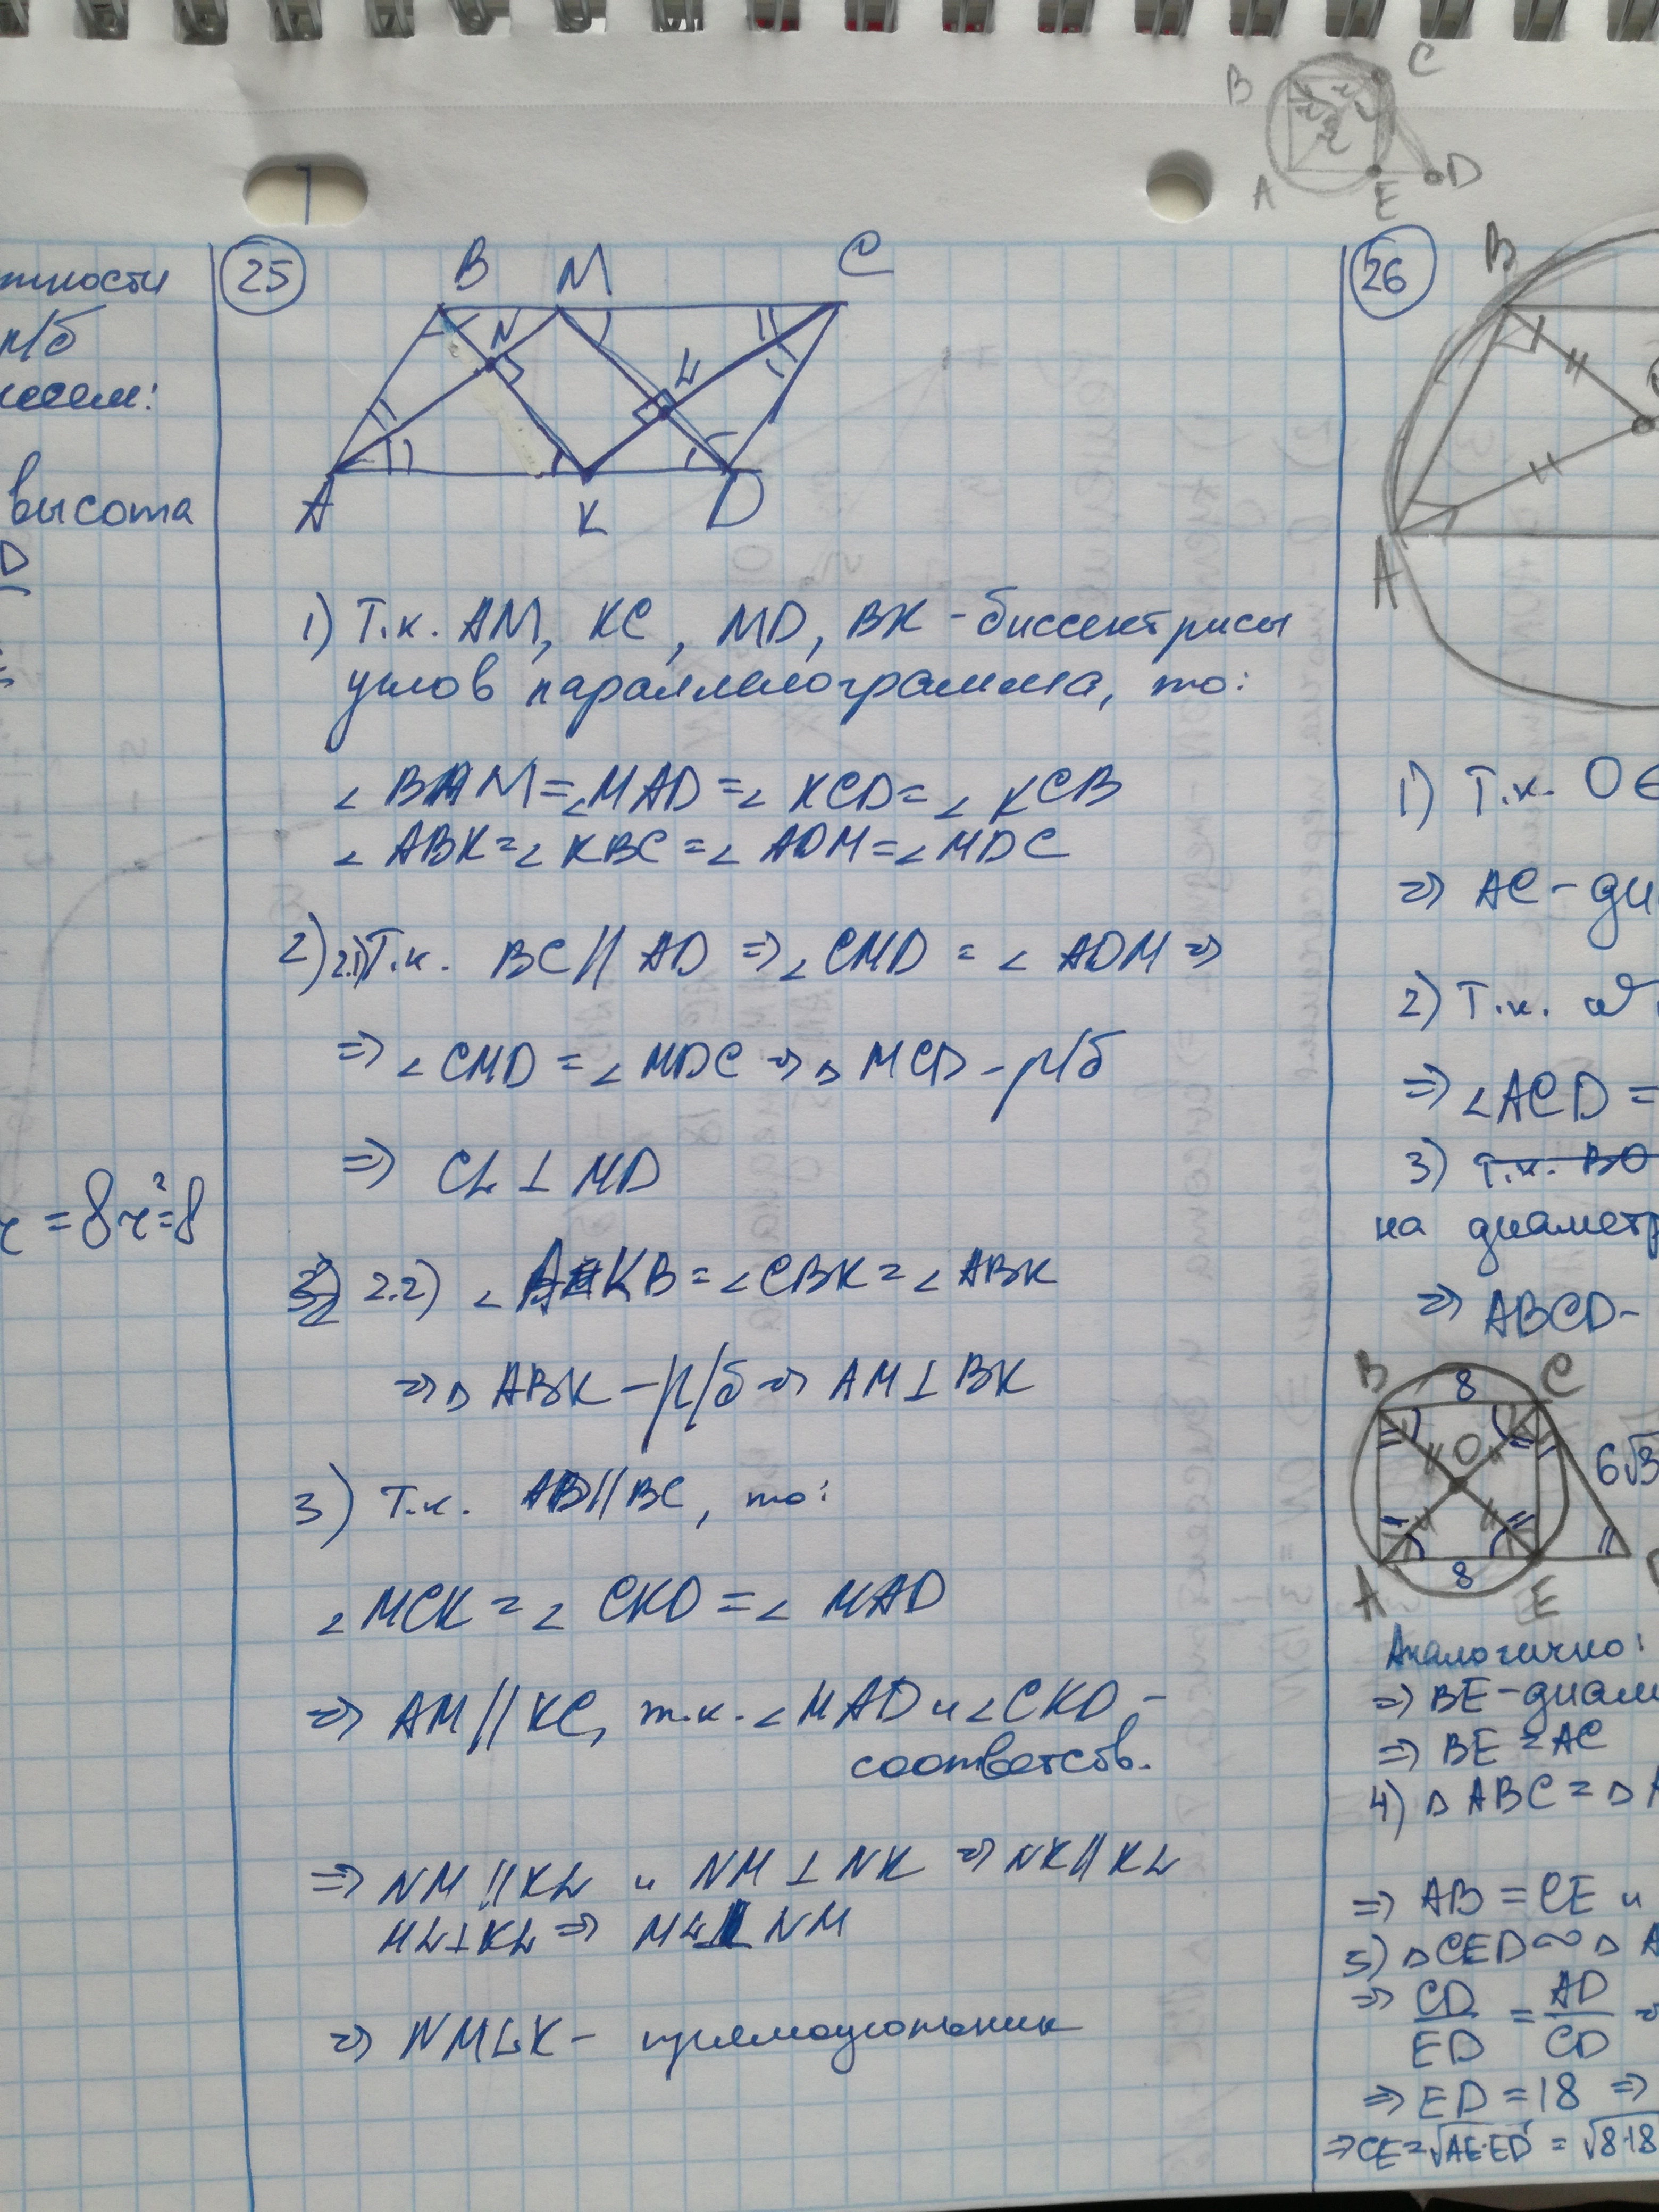 B C
A E D
тности
р/б
высота
D
r = 8 r² = 8
25
B M C
N L
A K D
1) Т.к. AM, KC, MD, BK - биссектрисы
углов параллелограмма, то:
∠ BAM = ∠ MAD = ∠ KCD = ∠ KCB
∠ ABK = ∠ KBC = ∠ ADM = ∠ MDC
2) 2.1) Т.к. BC // AD => ∠ CMD = ∠ ADM =>
=> ∠ CMD = ∠ MDC => △ MCD - р/б
=> CL ⊥ MD
2.2) ∠ AKB = ∠ CBK = ∠ ABK
=> △ ABK - р/б => AM ⊥ BK
3) Т.к. AD // BC, то:
∠ MCK = ∠ CKD = ∠ MAD
=> AM // KC, т.к. ∠ MAD и ∠ CKD -
соответсв.
=> NM // KL и NM ⊥ NK => NK // KL
ML ⊥ KL => ML ⊥ NM
=> NMLK - прямоугольник
26
B
A
1) Т.к. O ∈
=> AC - ди
2) Т.к.
=> ∠ ACD =
3) Т.к. BO
на диаметр
=> ABCD -
B 8 C
O 6√3
A 8 E
Аналогично:
=> BE - диам
=> BE = AC
4) △ ABC = △
=> AB = CE и
5) △ CED ∾ △ A
=> CD/ED = AD/CD =>
=> ED = 18 =>
=> CE = √AE·ED = √8·18